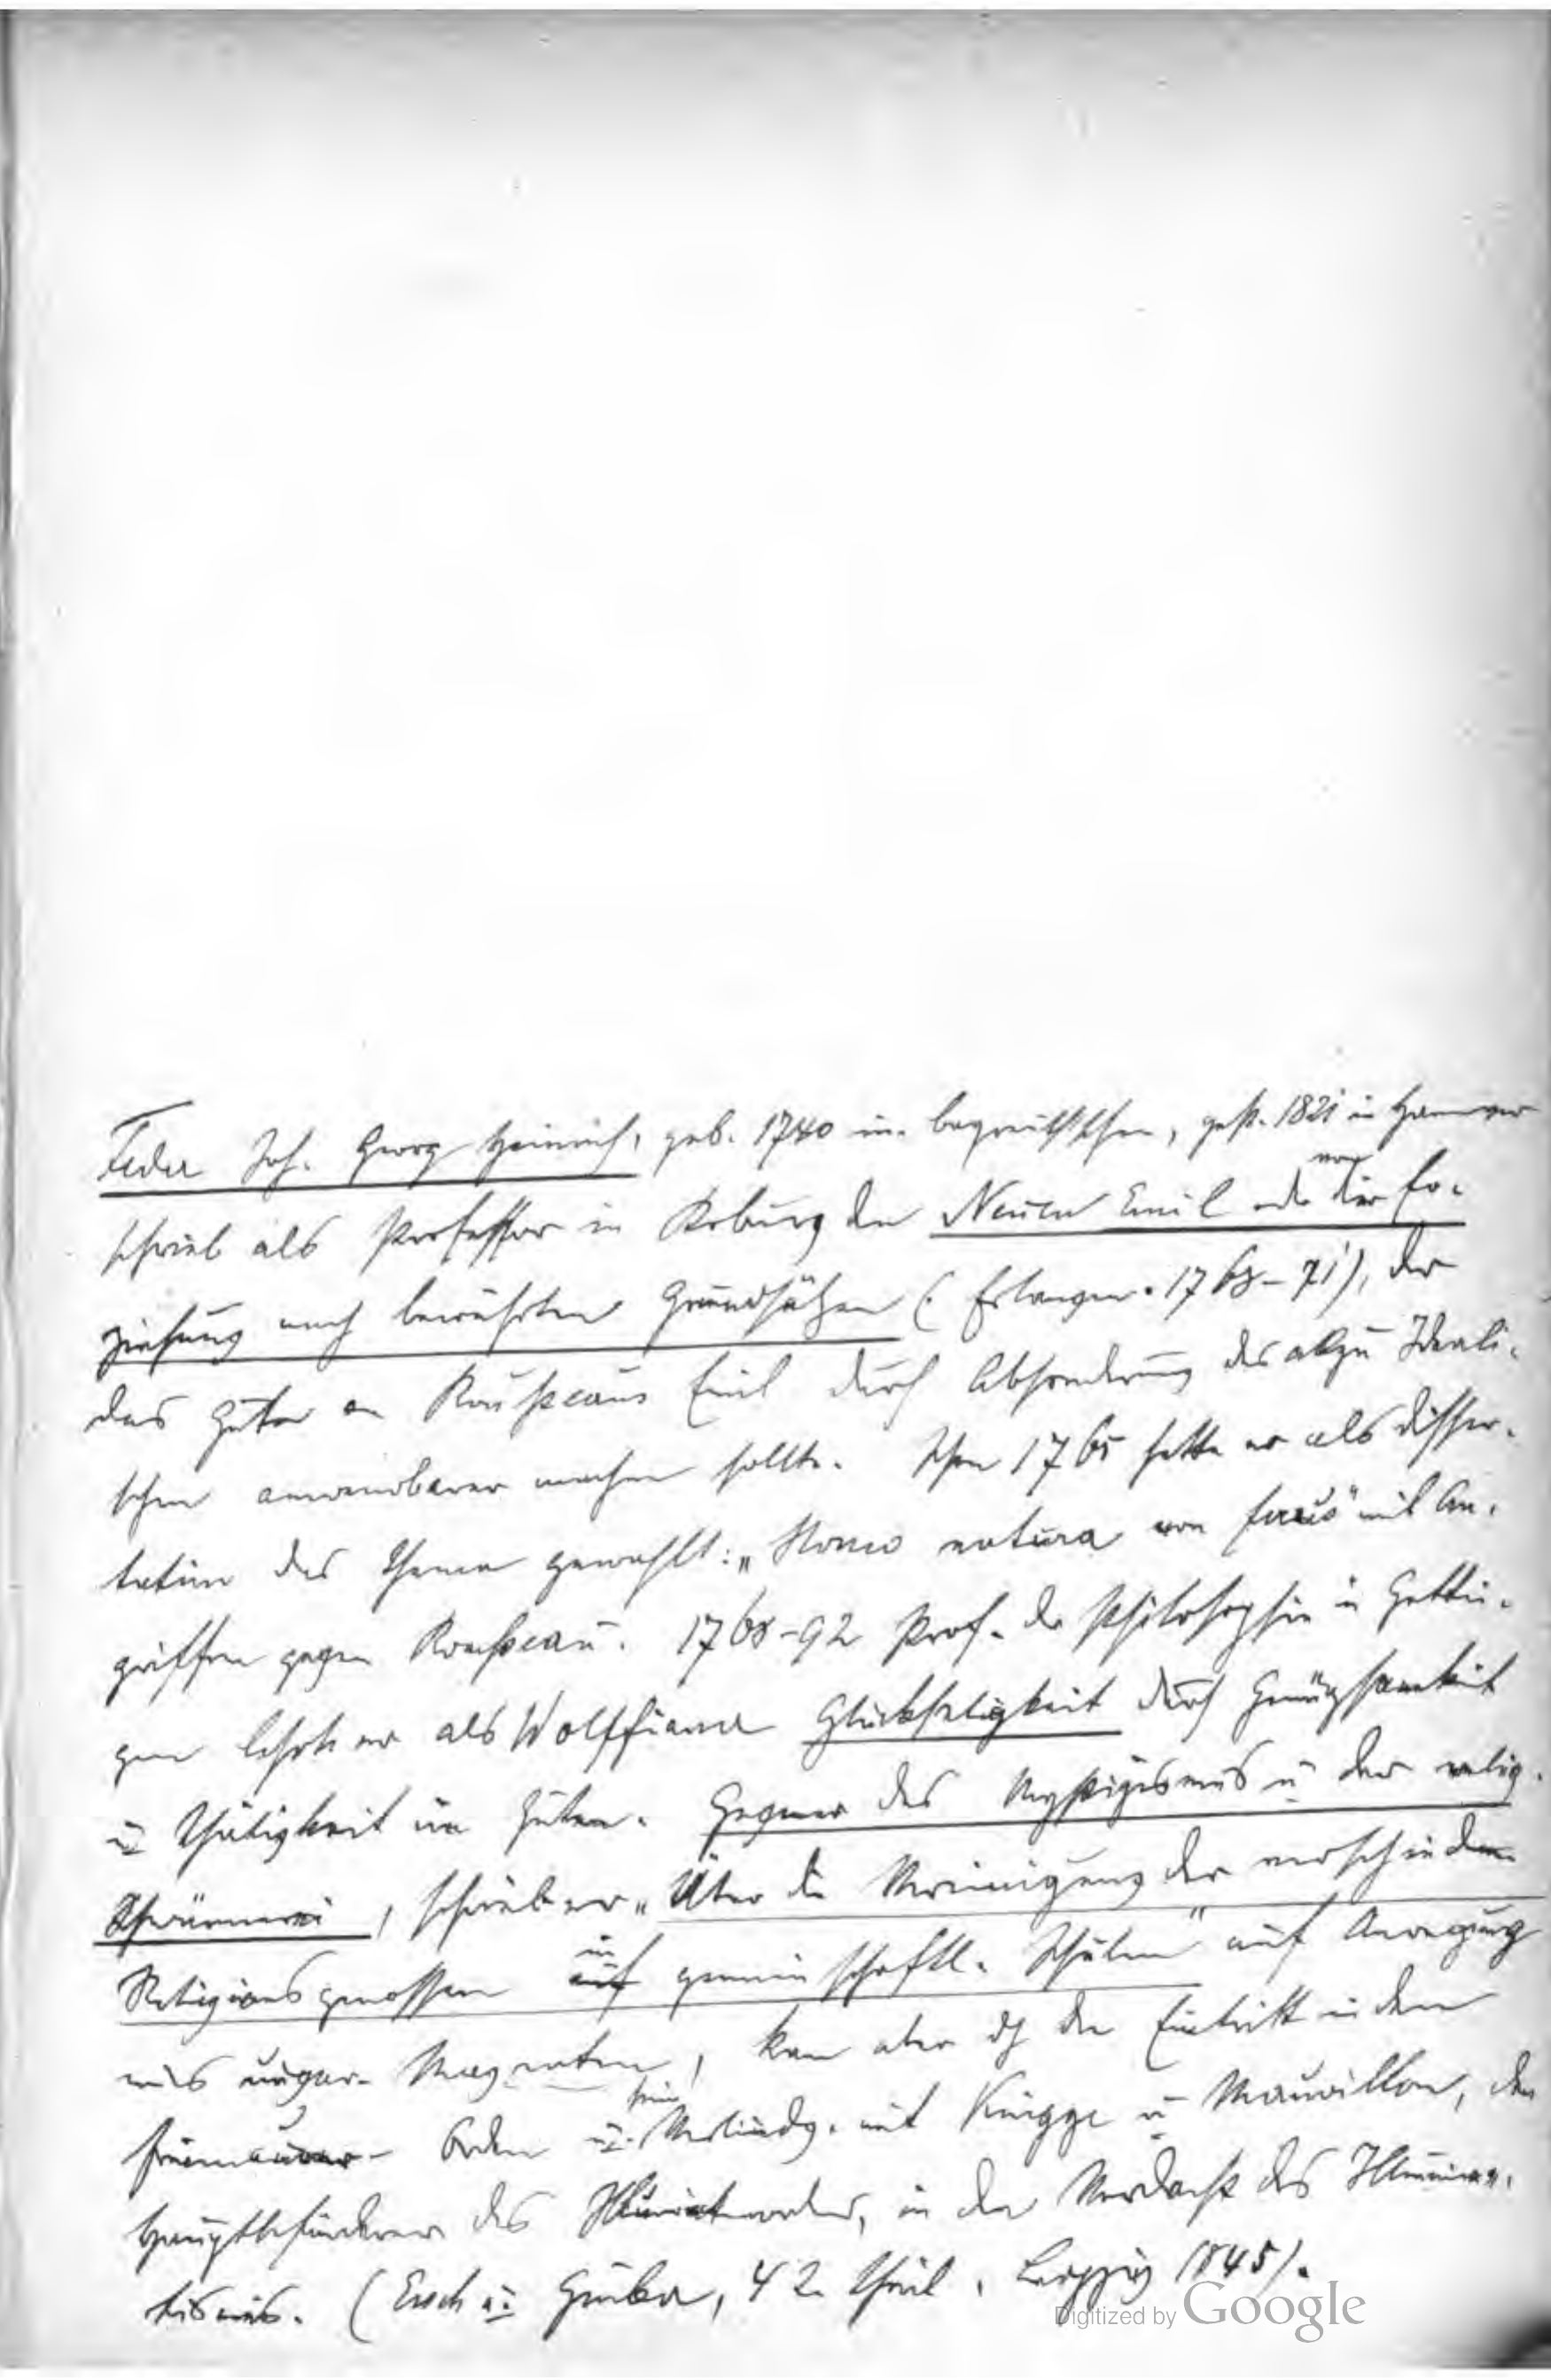 Feder Joh. Georg Heinrich, geb. 1740 im Bayreuthschen, gest. 1821 in Hannover
schrieb als Professor in Koburg den Neuen Emil oder von der Er-
ziehung nach bewährten Grundsätzen (Erlangen. 1768-71), der
das Gute an Roußeaus Emil durch Absonderung des allzu Ideali-
schen anwendbarer machen sollte. Schon 1765 hatte er als Disser-
tation das Thema gewählt: „Homo natura non ferus" mit An-
griffen gegen Roußeau. 1768-92 Prof. der Philosophie in Göttin-
gen lehrte er als Wolffianer Glückseligkeit durch Genügsamkeit
u Thätigkeit im Guten. Gegner des Mystizismus u der relig.
Schwärmerei, schrieb er „Über die Vereinigung der verschiedenen
Religionsgenossen in gemeinschaftl. Schulen" auf Anregung
eines ungar. Magnaten, kam aber durch den Eintritt in den
Freimaurer-Orden u. seine Verbindg. mit Knigge u Mauvillon, den
Hauptbeförderern des Illuminatenordens, in den Verdacht des Illumina-
tismus. (Ersch u. Gruber, 42. Theil, Leipzig 1845).
Digitized by Google